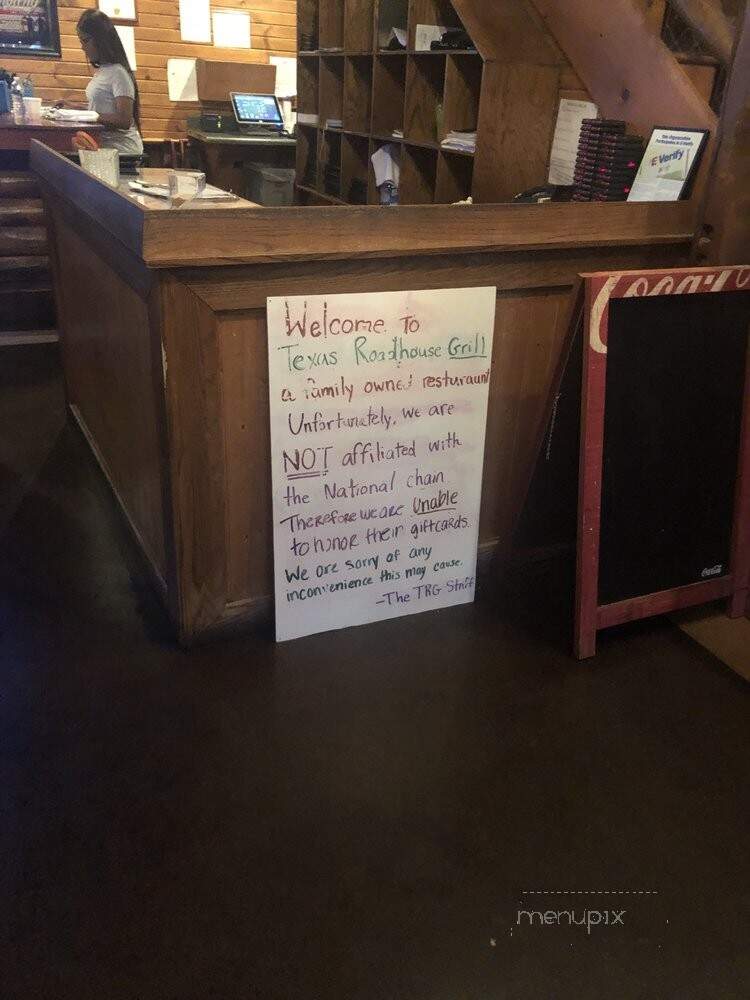 E Verify
Coca-C
Welcome To
Texas Roadhouse Grill
a family owned resturaunt
Unfortunately, we are
NOT affiliated with
the National chain
Therefore we are Unable
to honor their giftcards.
We are sorry of any
inconvenience this may cause.
-The TRG Staff
Coca-Cola
menupix